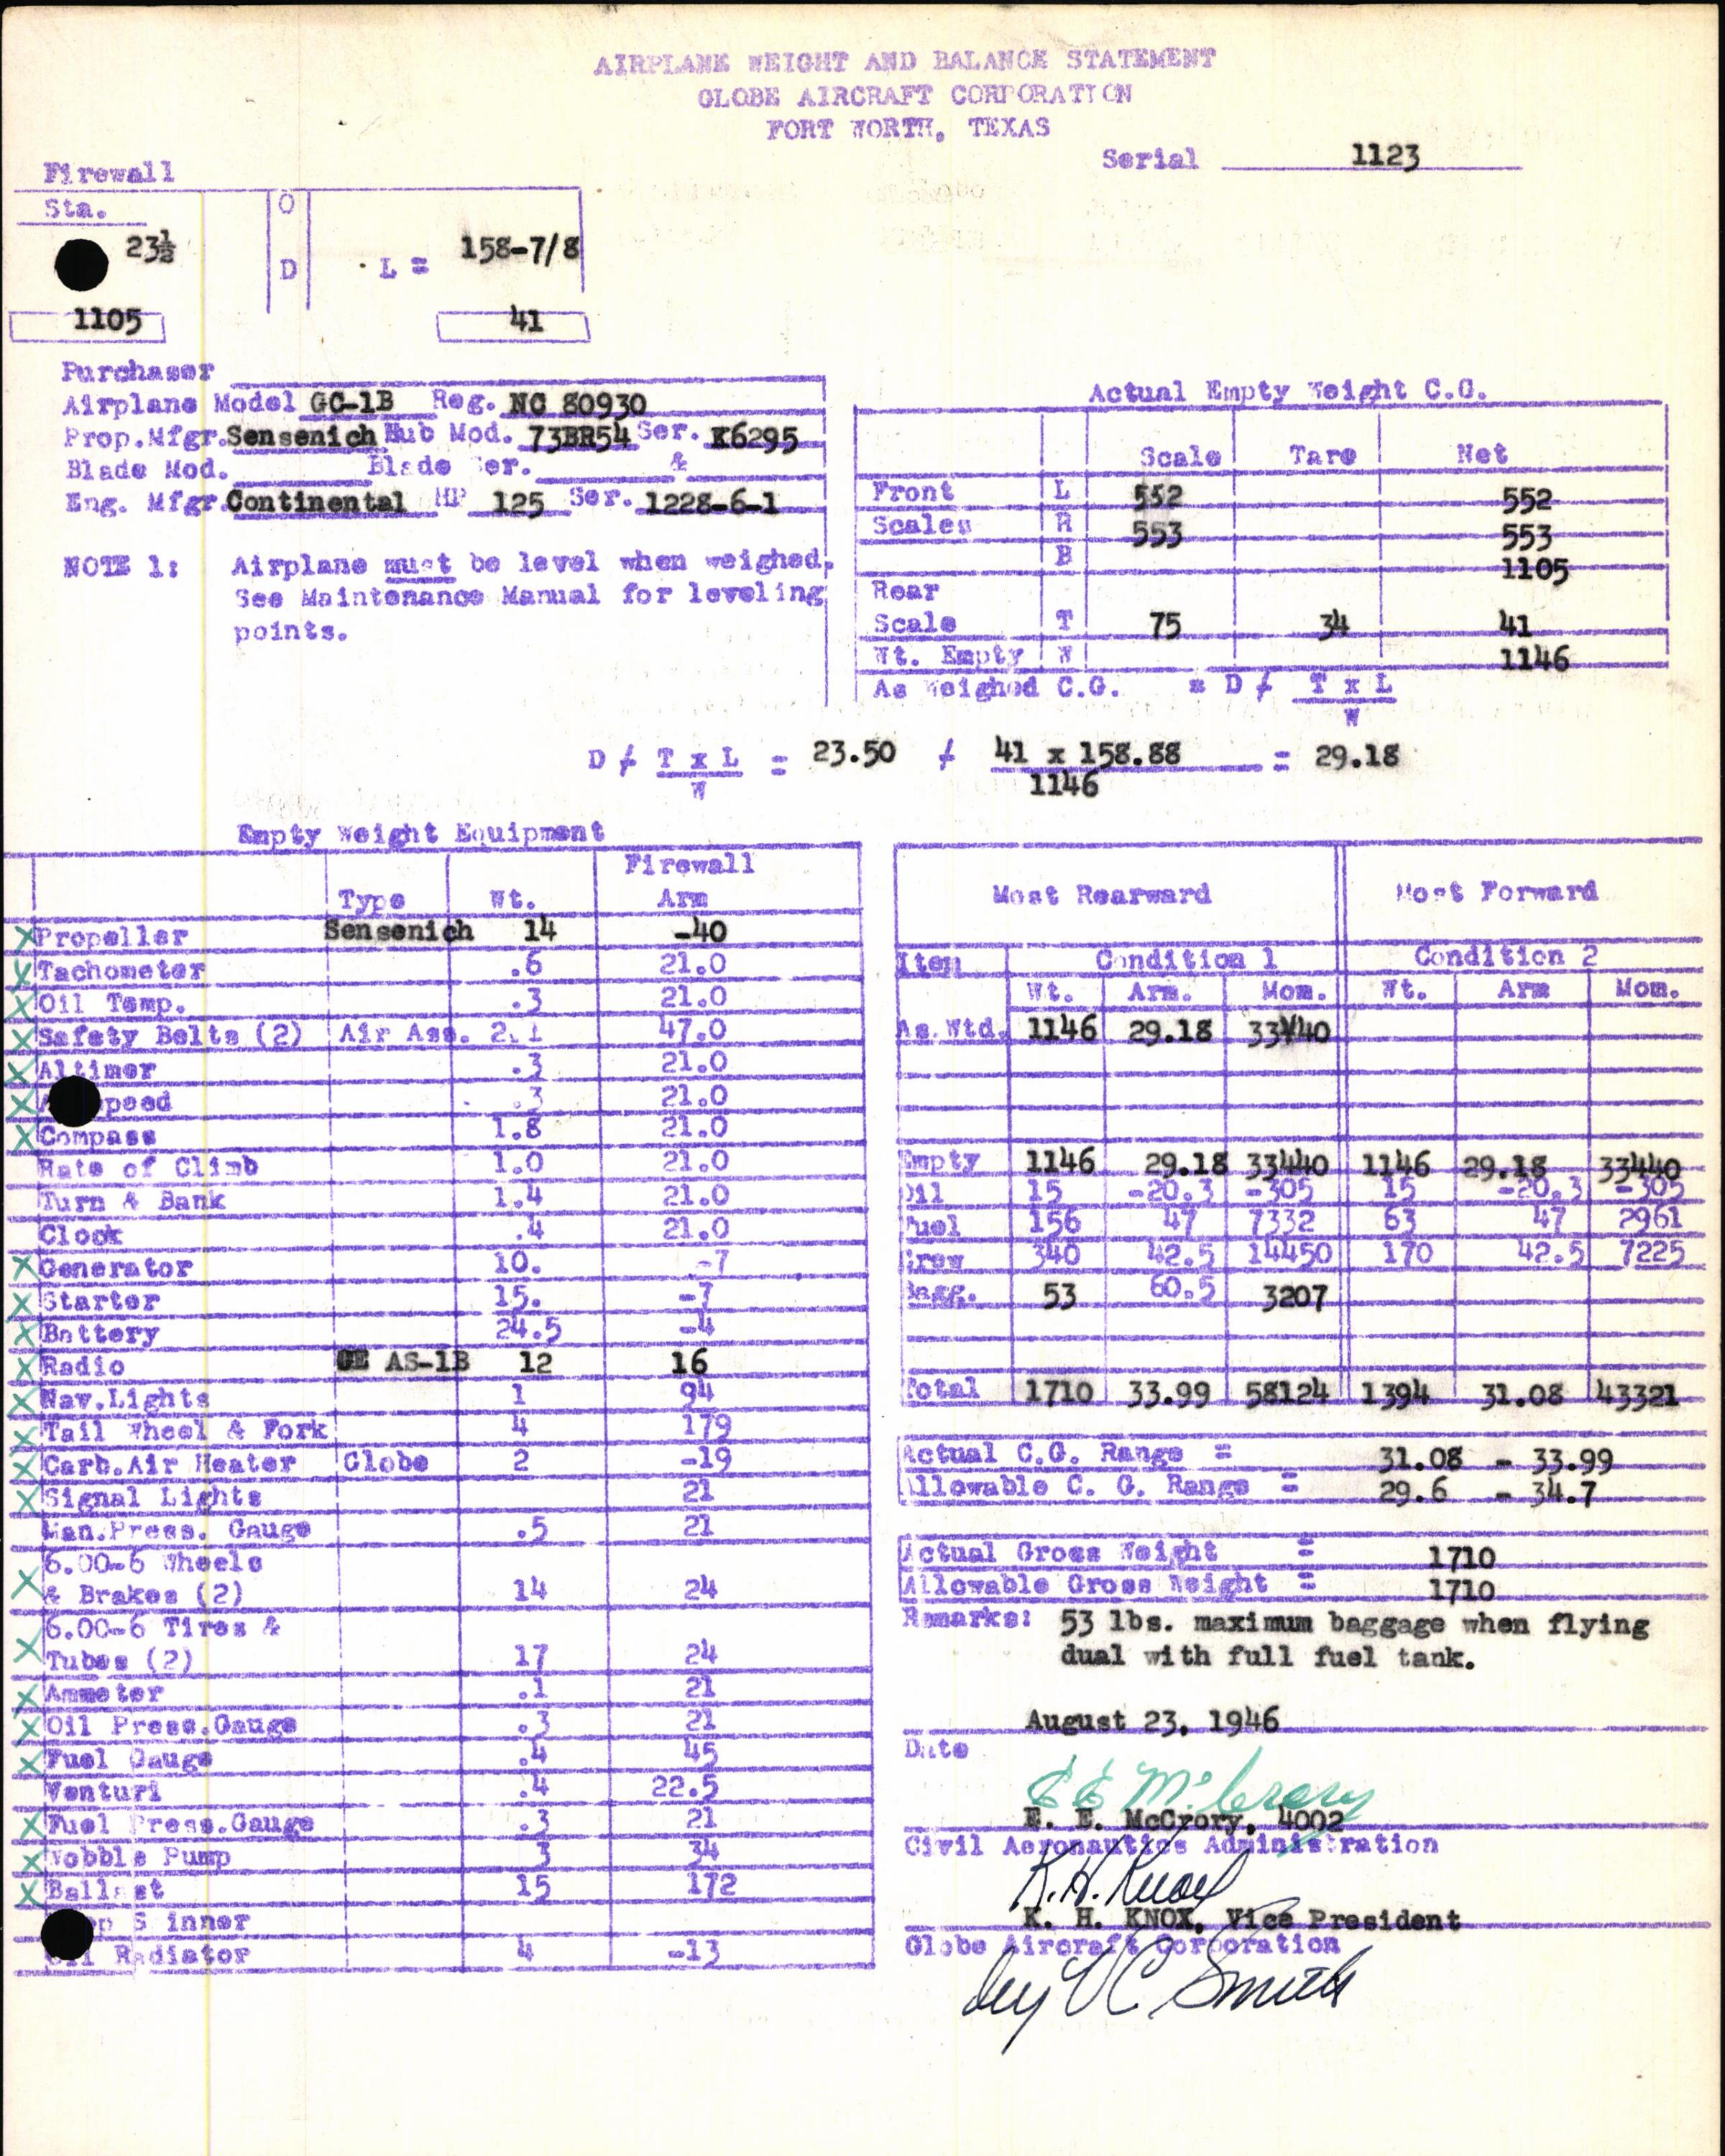 AIRPLANE WEIGHT AND BALANCE STATEMENT
GLOBE AIRCRAFT CORPORATION
FORT WORTH, TEXAS
Serial 1123
Firewall
Sta. O
23½ D L = 158-7/8
1105 41
Purchaser
Airplane Model GC-1B Reg. NC 80930
Prop.Mfgr. Sensenich Hub Mod. 73BR54 Ser. K6295
Blade Mod. Blade Ser. &
Eng. Mfgr. Continental HP 125 Ser. 1228-6-1
NOTE 1: Airplane must be level when weighed.
See Maintenance Manual for leveling
points.
Actual Empty Weight C.G.
Scale Tare Net
Front L 552 552
Scales R 553 553
B 1105
Rear
Scale T 75 34 41
Wt. Empty W 1146
As Weighed C.G. = D / T x L
W
D / T x L = 23.50 / 41 x 158.88 = 29.18
W 1146
Empty Weight Equipment
Firewall
Type Wt. Arm
X Propeller Sensenich 14 -40
X Tachometer .6 21.0
X Oil Temp. .3 21.0
X Safety Belts (2) Air Ass. 2.1 47.0
X Altimer .3 21.0
X peed .3 21.0
X Compass 1.8 21.0
Rate of Climb 1.0 21.0
Turn & Bank 1.4 21.0
Clock .4 21.0
X Generator 10. -7
X Starter 15. -7
X Battery 24.5 -4
X Radio GE AS-1B 12 16
X Nav.Lights 1 94
X Tail Wheel & Fork 4 179
X Carb.Air Heater Globe 2 -19
X Signal Lights 21
Man.Press. Gauge .5 21
6.00-6 Wheels
X & Brakes (2) 14 24
6.00-6 Tires &
X Tubes (2) 17 24
X Ammeter .1 21
X Oil Press.Gauge .3 21
X Fuel Gauge .4 45
Venturi .4 22.5
X Fuel Press.Gauge .3 21
X Wobble Pump 3 34
X Ballast 15 172
op S inner
Oil Radiator 4 -13
Most Rearward Most Forward
Item Condition 1 Condition 2
Wt. Arm. Mom. Wt. Arm Mom.
As Wtd. 1146 29.18 33440
Empty 1146 29.18 33440 1146 29.18 33440
Oil 15 -20.3 -305 15 -20.3 -305
Fuel 156 47 7332 63 47 2961
Crew 340 42.5 14450 170 42.5 7225
Bagg. 53 60.5 3207
Total 1710 33.99 58124 1394 31.08 43321
Actual C.G. Range = 31.08 - 33.99
Allowable C. G. Range = 29.6 - 34.7
Actual Gross Weight = 1710
Allowable Gross Weight = 1710
Remarks: 53 lbs. maximum baggage when flying
dual with full fuel tank.
August 23, 1946
Date
E E McCrory
E. E. McCrory, 4002
Civil Aeronautics Administration
K. H. Knox
K. H. KNOX, Vice President
Globe Aircraft Corporation
by V C Smith